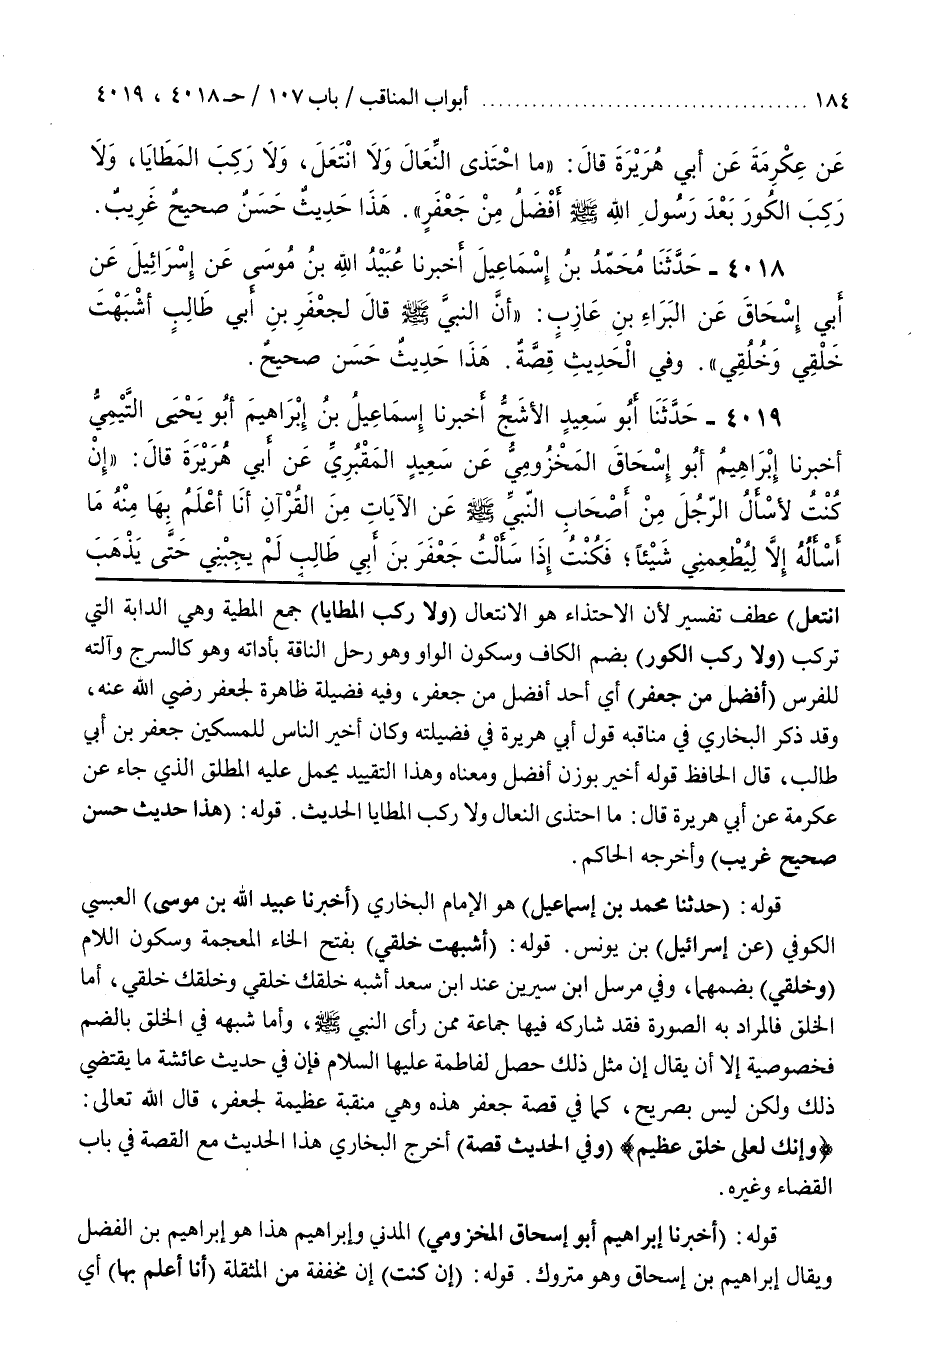 ١٨٤ ....................................... أبواب المناقب / باب ١٠٧ / حـ ٤٠١٨ ، ٤٠١٩
عَن عِكْرِمَةَ عَن أبي هُرَيْرَةَ قالَ: «ما احْتَذى النِّعَالَ وَلَا انْتَعَلَ، وَلَا رَكِبَ المَطَايَا، وَلَا
رَكِبَ الكُورَ بَعْدَ رَسُولِ اللهِ ﷺ أَفْضَلُ مِنْ جَعْفَرٍ». هَذَا حَدِيثٌ حَسَنٌ صحيحٌ غَرِيبٌ.
٤٠١٨ ـ حَدَّثَنَا مُحَمَّدُ بنُ إِسْمَاعِيلَ أخبرنا عُبَيْدُ اللهِ بنُ مُوسَى عَن إِسْرَائِيلَ عَن
أبي إِسْحَاقَ عَن البَرَاءِ بنِ عَازِبٍ: «أنَّ النبيَّ ﷺ قالَ لجعْفَرِ بنِ أبي طَالِبٍ أَشْبَهْتَ
خَلْقِي وَخُلُقِي». وفي الْحَدِيثِ قِصَّةٌ. هَذَا حَدِيثٌ حَسَن صحيحٌ.
٤٠١٩ ـ حَدَّثَنَا أَبُو سَعِيدٍ الأشَجُّ أخبرنا إسمَاعِيلُ بنُ إِبْرَاهِيمَ أبُو يَحْيَى التَّيْمِيُّ
أخبرنا إِبْرَاهِيمُ أبُو إِسْحَاقَ المَخْزُومِيُّ عَن سَعِيدٍ المَقْبُرِيِّ عَن أبي هُرَيْرَةَ قالَ: «إِنْ
كُنْتُ لأسْأَلُ الرَّجُلَ مِنْ أَصْحَابِ النَّبيِّ ﷺ عَن الآيَاتِ مِنَ القُرْآنِ أنَا أَعْلَمُ بِهَا مِنْهُ مَا
أَسْأَلُهُ إِلَّا لِيُطْعِمنِي شَيْئاً؛ فَكُنْتُ إِذَا سَأَلْتُ جَعْفَرَ بنَ أبي طَالِبٍ لَمْ يجِبْنِي حَتَّى يَذْهَبَ
انتعل) عطف تفسير لأن الاحتذاء هو الانتعال (ولا ركب المطايا) جمع المطية وهي الدابة التي
تركب (ولا ركب الكور) بضم الكاف وسكون الواو وهو رحل الناقة بأداته وهو كالسرج وآلته
للفرس (أفضل من جعفر) أي أحد أفضل من جعفر، وفيه فضيلة ظاهرة لجعفر رضي الله عنه،
وقد ذكر البخاري في مناقبه قول أبي هريرة في فضيلته وكان أخير الناس للمسكين جعفر بن أبي
طالب، قال الحافظ قوله أخير بوزن أفضل ومعناه وهذا التقييد يحمل عليه المطلق الذي جاء عن
عكرمة عن أبي هريرة قال: ما احتذى النعال ولا ركب المطايا الحديث. قوله: (هذا حديث حسن
صحيح غريب) وأخرجه الحاكم.
قوله: (حدثنا محمد بن إسماعيل) هو الإمام البخاري (أخبرنا عبيد الله بن موسى) العبسي
الكوفي (عن إسرائيل) بن يونس. قوله: (أشبهت خلقي) بفتح الخاء المعجمة وسكون اللام
(وخلقي) بضمهما، وفي مرسل ابن سيرين عند ابن سعد أشبه خلقك خلقي وخلقك خلقي، أما
الخلق فالمراد به الصورة فقد شاركه فيها جماعة ممن رأى النبي ﷺ، وأما شبهه في الخلق بالضم
فخصوصية إلا أن يقال إن مثل ذلك حصل لفاطمة عليها السلام فإن في حديث عائشة ما يقتضي
ذلك ولكن ليس بصريح، كما في قصة جعفر هذه وهي منقبة عظيمة لجعفر، قال الله تعالى:
﴿وإنك لعلى خلق عظيم﴾ (وفي الحديث قصة) أخرج البخاري هذا الحديث مع القصة في باب
القضاء وغيره.
قوله: (أخبرنا إبراهيم أبو إسحاق المخزومي) المدني وإبراهيم هذا هو إبراهيم بن الفضل
ويقال إبراهيم بن إسحاق وهو متروك. قوله: (إن كنت) إن مخففة من المثقلة (أنا أعلم بها) أي